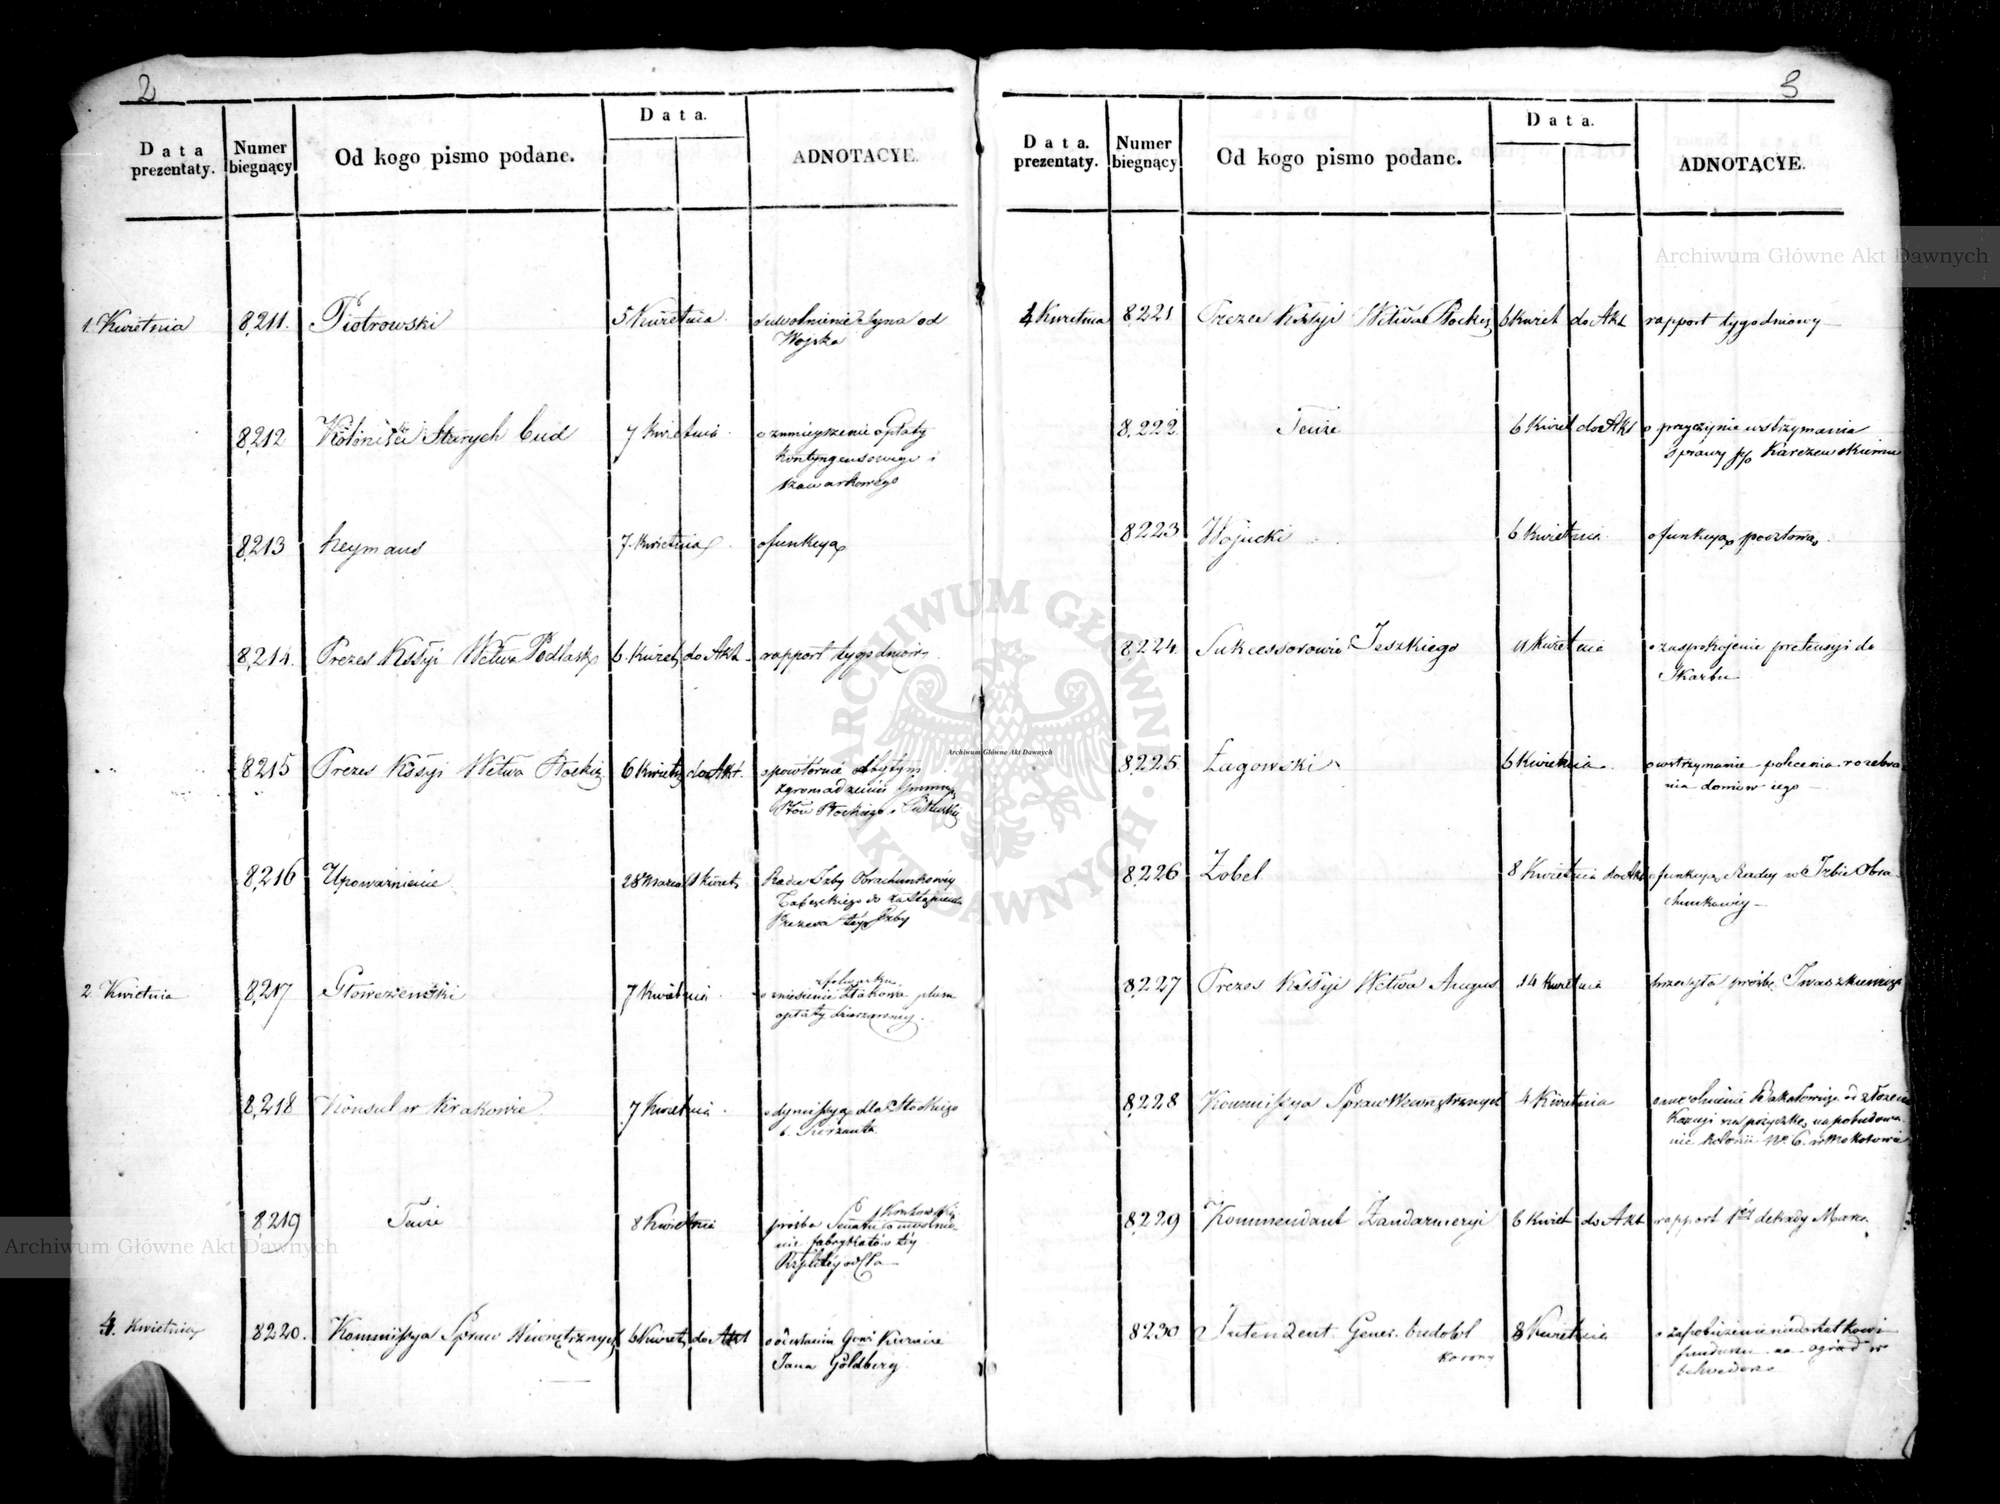 2
Data prezentaty.
Numer biegnący
Od kogo pismo podane.
Data.
ADNOTACYE.
1. Kwietnia 8211. Piotrowski 5 Kwietnia o uwolnienie Syna od
Woyska
8212 Koloniści Starych Bud 7 Kwietnia o zmnieyszenie opłaty
kontyngensowego i
8213 Heyman 7. Kwietnia o funkcyą
8214. Prezes Kssyi Wctwa Podlask 6. Kwiet do Akt rapport tygodniowy
8215 Prezes Kssyi Wctwa Płockiey 6 Kwiet do Akt. o powtórnie odbytym
zgromadzeniu Gminnym
Ptów Płockiego i Pułtuskiego
8216 Upoważnienie 28 Marca 1 Kwiet Radcu Izby Obrachunkowey
do zastąpienia
Prezesa téyże Izby
2 Kwietnia 8217 7 Kwietnia
o zniesienie
opłaty dzierżawney.
8218 Konsul w Krakowie 7 Kwietnia o dymissyą dla Słodkiego
b. Serżanta
8219 Tenże 8 Kwietnia prośba Senatu o uwolnie-
nie fabrykatów téy
Rzpltéy od Cła
4. Kwietnia 8220. Kommissya Spraw Wewnętrznych 6 Kwiet do Akt o odesłaniu
Jana Goldberg
3
Data. prezentaty.
Numer biegnący
Od kogo pismo podane.
Data.
ADNOTACYE.
4 Kwietnia 8221 Prezes Kssyi Wctwa Płockiey 6 Kwiet do Akt rapport tygodniowy
8222 Tenże 6 Kwiet do Akt o przyczynie wstrzymania
sprawy p/o Karczewskiemu
8223 Wojucki 6 Kwietnia o funkcyą pocztową
8224 Sukcessorowie Jeszkiego 11 Kwietnia o zaspokojenie pretensyi do
Skarbu
8225 Łagowski 6 Kwietnia o wstrzymanie polecenia rozebra-
nia domów iego
8226 Zobel 8 Kwietnia do Akt o funkcyą Radcy w Izbie Obra-
chunkowey
8227 Prezes Kssyi Wctwa Augus 14 Kwietnia przesyła prośbę Iwaszkiewicza
8228 Kommissya Spraw Wewnętrznych 4 Kwietnia o uwolnienie od złożenia
Kaucyi na pożyczkę na pobudowa-
nie kolonii Nr. 6. w Mokotowie
8229 Kommendant Żandarmeryi 6 Kwiet do Akt rapport 1éy dekady Marca
8230 Intendent Gener. budowl
Korony
8 Kwietnia o zapobieżenie niedostatkowi
funduszu na ogród w
belwederze
Archiwum Główne Akt Dawnych
Archiwum Główne Akt Dawnych
Archiwum Główne Akt Dawnych
ARCHIWUM GŁÓWNE AKT DAWNYCH